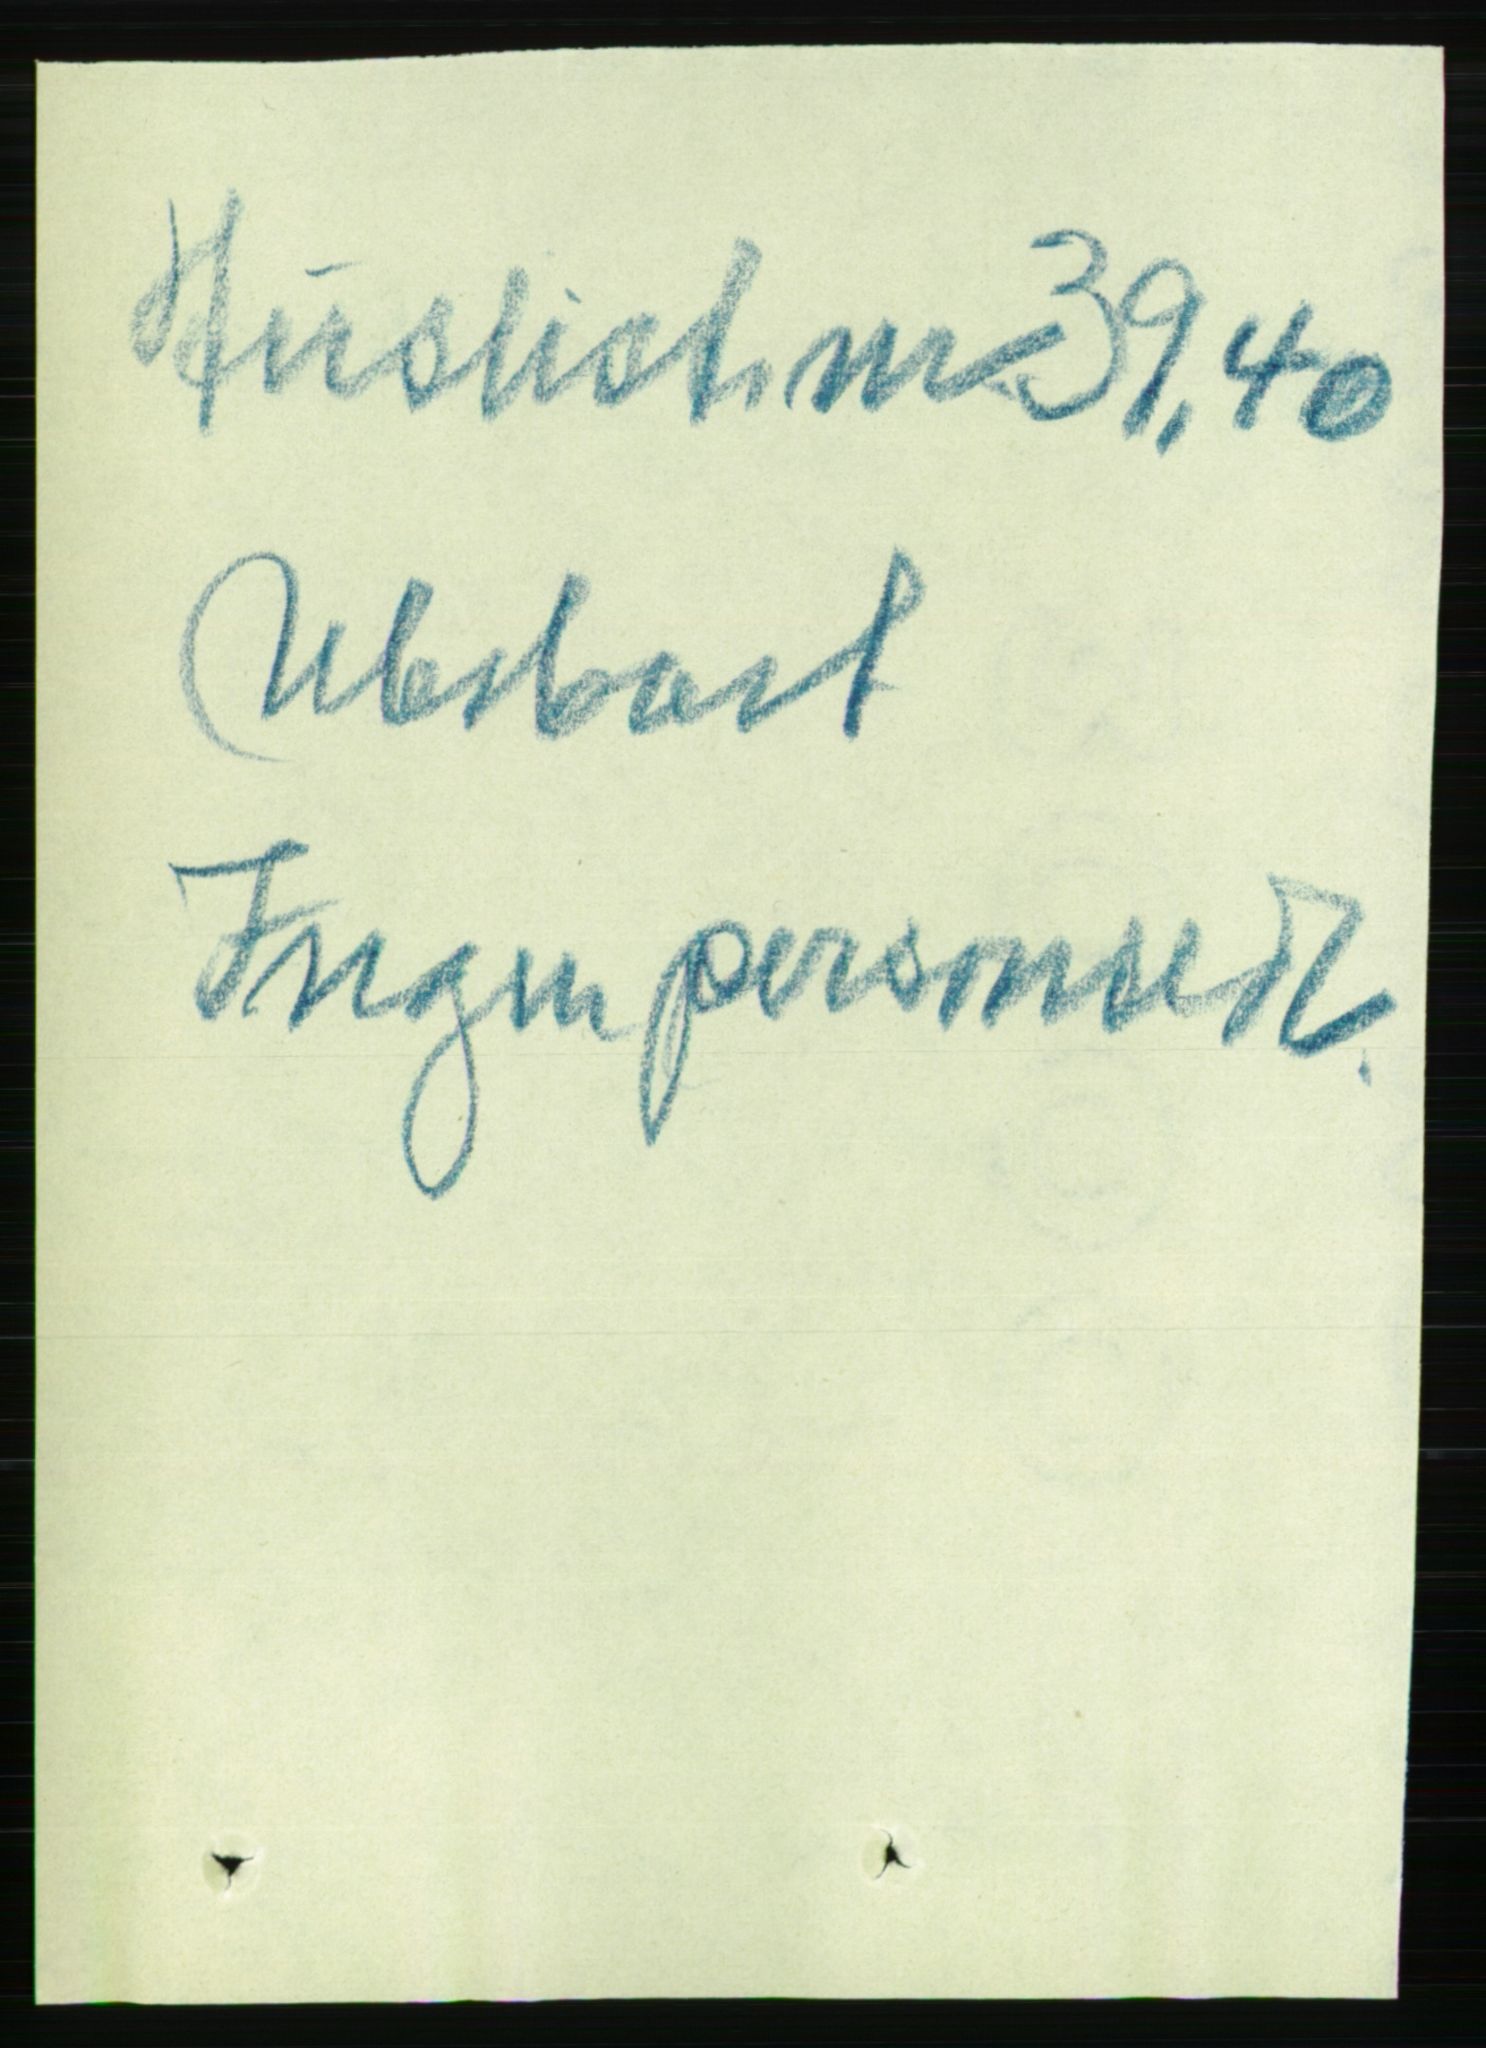 Husliste nr 39,40
Ubebodt
Ingen personer.